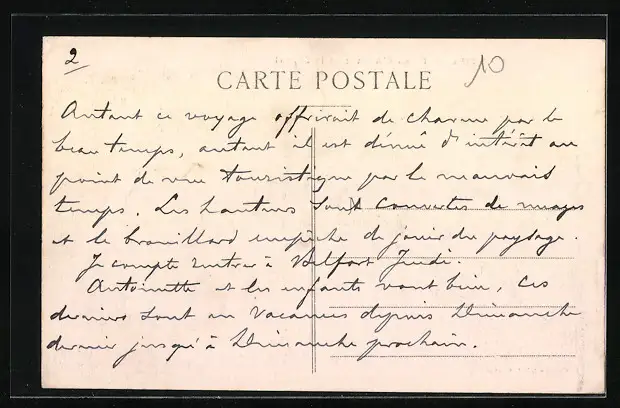 2
10
CARTE POSTALE
Autant ce voyage offrirait de charme par le
beau temps, autant il est dénué d'intérêt au
point de vue touristique par le mauvais
temps. Les hauteurs sont couvertes de nuages
et le brouillard empêche de jouir du paysage.
Je compte rentrer à Belfort Jeudi.
Antoinette et les enfants vont bien, Ces
derniers sont en Vacances depuis Dimanche
dernier jusqu'à Dimanche prochain.